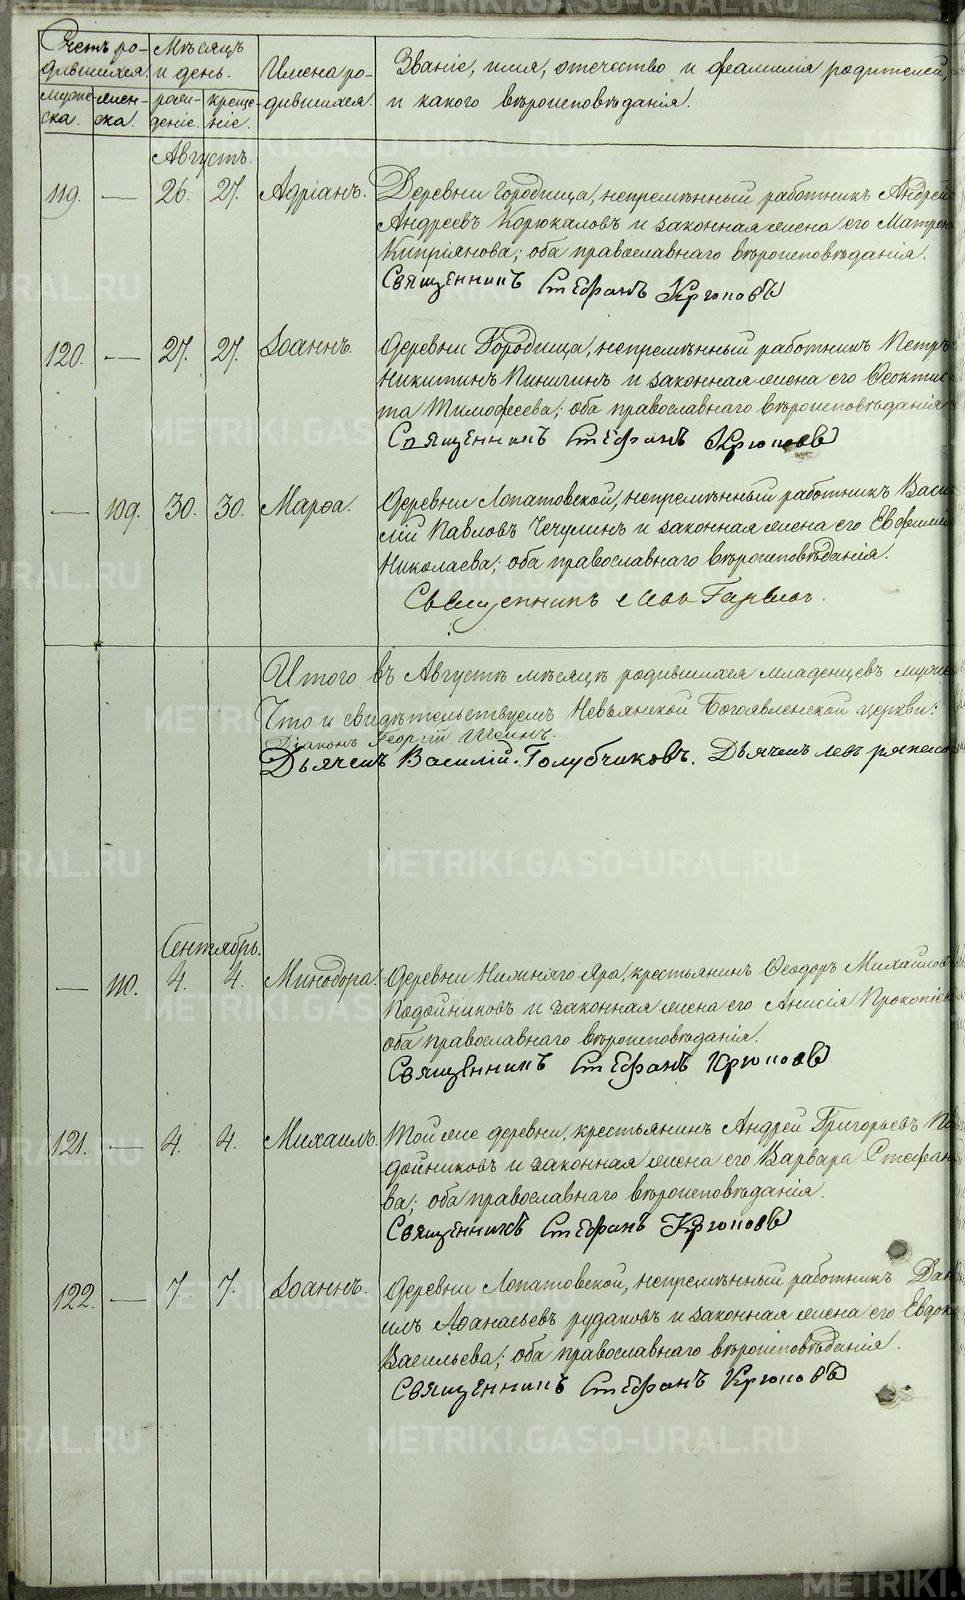 Счетъ родившихся.
Мѣсяцъ и день.
Имена родившихся.
Званіе, имя, отечество и фамилія родителей,
и какого вѣроисповѣданія.
мужеска. женска. рожденіе. крещеніе.
Августъ.
119. — 26. 27. Адріанъ. Деревни Городища, непремѣнный работникъ Андрей
Андреевъ Корюкаловъ и законная жена его Матрон
Кипріянова; оба православнаго вѣроисповѣданія.
Священникъ Стефанъ Крюковъ
120. — 27. 27. Іоаннъ. Деревни Городища, непремѣнный работникъ Петръ
Никитинъ Пинигинъ и законная жена его Ѳеоктис
та Тимофеева; оба православнаго вѣроисповѣданія
Священникъ Стефанъ Крюковъ
— 109. 30. 30. Марѳа. Деревни Лопатовской, непремѣнный работникъ Васи
лій Павловъ Чечулинъ и законная жена его Евфимія
Николаева; оба православнаго вѣроисповѣданія.
Священникъ
Итого въ Августѣ мѣсяцѣ родившихся младенцевъ муже
Что и свидѣтельствуемъ Невьянской Богоявленской церкви:
Діаконъ Георгій
Дьячекъ Василій Голубчиковъ. Дьячекъ Левъ
Сентябрь.
— 110. 4. 4. Минодора. Деревни Нижняго Яра, крестьянинъ Ѳеодоръ Михайлов
Подойниковъ и законная жена его Анисія Прокопіев
оба православнаго вѣроисповѣданія.
Священникъ Стефанъ Крюковъ
121. — 4. 4. Михаилъ. Той же деревни, крестьянинъ Андрей Григорьевъ По
дойниковъ и законная жена его Варвара Стефан
ва; оба православнаго вѣроисповѣданія.
Священникъ Стефанъ Крюковъ
122. — 7. 7. Іоаннъ. Деревни Лопатовской, непремѣнный работникъ Дан
илъ Аѳанасьевъ Рудаковъ и законная жена его Евдок
Васильева; оба православнаго вѣроисповѣданія.
Священникъ Стефанъ Крюковъ
METRIKI.GASO-URAL.RU